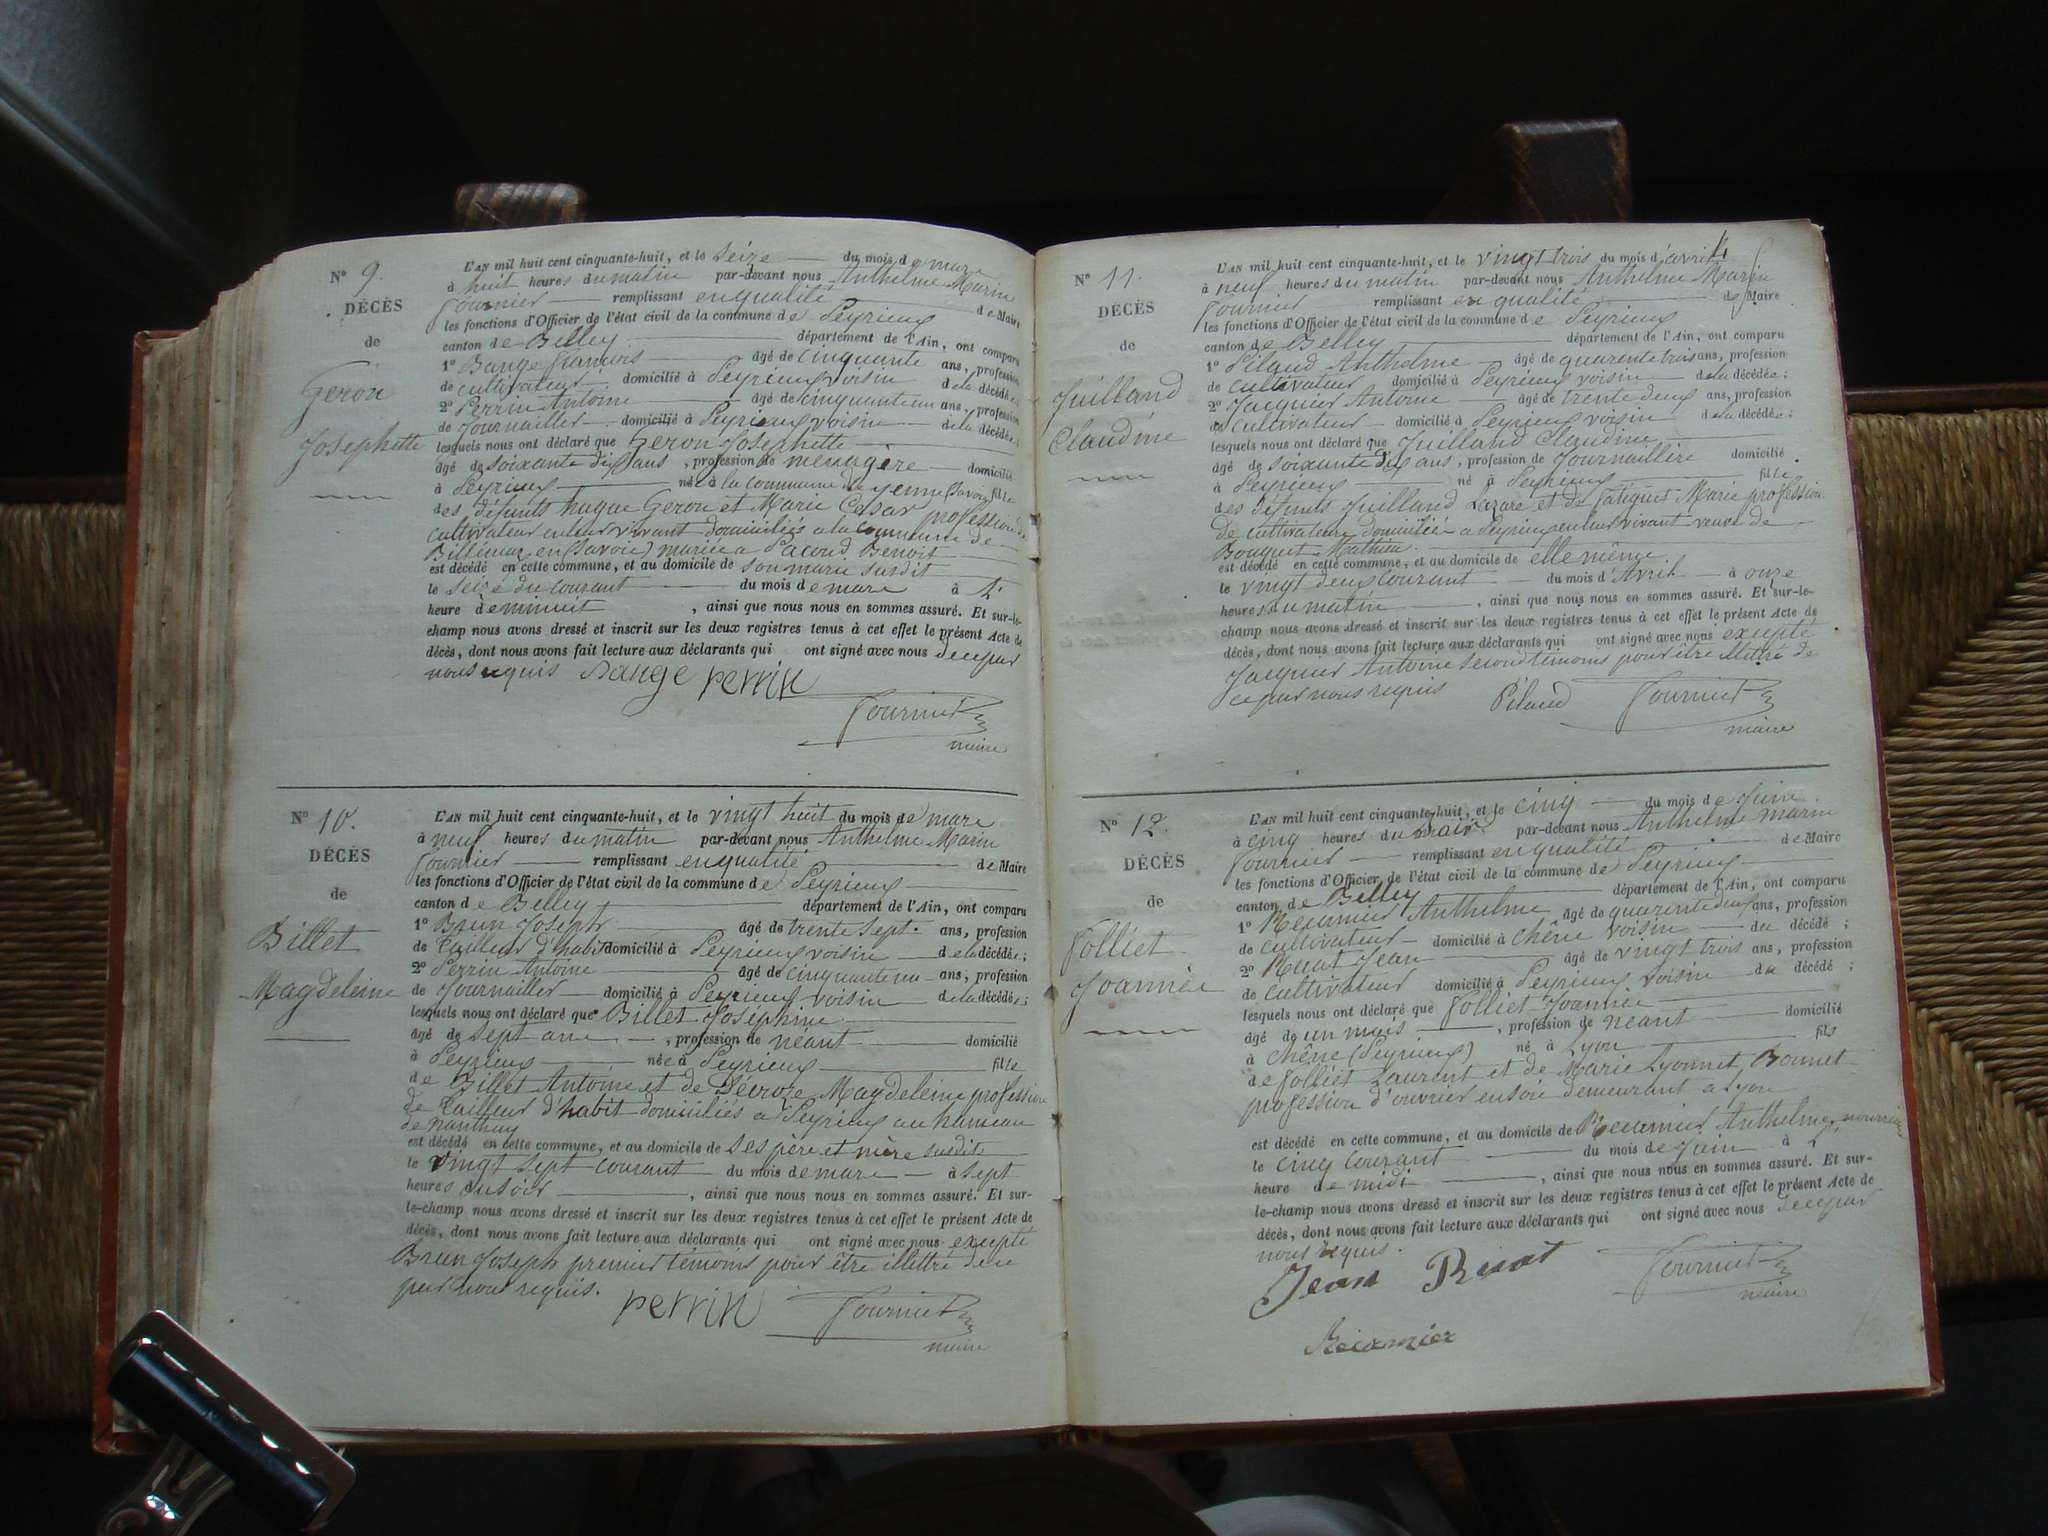 N° 9.
DÉCÈS
de
Geron
Josephette
L'AN mil huit cent cinquante-huit, et le seize du mois de mars
à huit heures du matin par-devant nous Anthelme Marin
Fournier remplissant en qualité de Maire
les fonctions d'Officier de l'état civil de la commune de Peyrieux
canton de Belley département de l'Ain, ont comparu
1° Bange francois âgé de cinquante ans, profession
de cultivateur domicilié à Peyrieux voisin de la décédée;
2° Perrin Antoine âgé de cinquante un ans, profession
de Journailler domicilié à Peyrieux voisin de la décédée;
lesquels nous ont déclaré que Geron Josephette
âgé de soixante dix ans, profession de ménagère domicilié
à Peyrieux né à la commune de yenne (Savoie) fille
des défunts hugue Geron et Marie Cesar profession de
cultivateur en leur vivant domiciliés a la commune de
en (Savoie) mariée a Benoit
est décédé en cette commune, et au domicile de son marie susdit
le seize du courant du mois de mars à 1
heure de minuit, ainsi que nous nous en sommes assuré. Et sur-le-
champ nous avons dressé et inscrit sur les deux registres tenus à cet effet le présent Acte de
décès, dont nous avons fait lecture aux déclarants qui ont signé avec nous de ce par
nous requis Bange perrin
Fournier
maire
N° 10.
DÉCÈS
de
Billet
Magdeleine
L'AN mil huit cent cinquante-huit, et le vingt huit du mois de mars
à neuf heures du matin par-devant nous Anthelme Marin
Fournier remplissant en qualité de Maire
les fonctions d'Officier de l'état civil de la commune de Peyrieux
canton de Belley département de l'Ain, ont comparu
1° Brun Joseph âgé de trente sept ans, profession
de tailleur d'habit domicilié à Peyrieux voisin de la décédée;
2° Perrin Antoine âgé de cinquante un ans, profession
de Journailler domicilié à Peyrieux voisin de la décédée;
lesquels nous ont déclaré que Billet Josephine
âgé de sept ans, profession de néant domicilié
à Peyrieux née à Peyrieux fille
de Billet Antoine et de Décroze Magdeleine profession
de tailleur d'habit domiciliés a Peyrieux au hameau
de nanthuy
est décédé en cette commune, et au domicile de ses père et mère susdits
le vingt sept courant du mois de mars à sept
heures du soir, ainsi que nous nous en sommes assuré. Et sur-
le-champ nous avons dressé et inscrit sur les deux registres tenus à cet effet le présent Acte de
décès, dont nous avons fait lecture aux déclarants qui ont signé avec nous excepté
Brun Joseph premier témoins pour être illettré de ce
par nous requis. perrin Fournier
maire
4
N° 11.
DÉCÈS
de
Juilland
Claudine
L'AN mil huit cent cinquante-huit, et le vingt trois du mois d'avril
à neuf heures du matin par-devant nous Anthelme Marin
Fournier remplissant en qualité de Maire
les fonctions d'Officier de l'état civil de la commune de Peyrieux
canton de Belley département de l'Ain, ont comparu
1° Pélaud Anthelme âgé de quarente trois ans, profession
de cultivateur domicilié à Peyrieux voisin de la décédée;
2° Jacquier Antoine âgé de trente deux ans, profession
de cultivateur domicilié à Peyrieux voisin de la décédée;
lesquels nous ont déclaré que Juilland Claudine
âgé de soixante dix ans, profession de Journaillère domicilié
à Peyrieux né à Peyrieux fille
des défunts Juilland Lazare et de Marie profession
de cultivateurs domiciliés a Peyrieux en leur vivant veuve de
Bouquet Mathieu.
est décédé en cette commune, et au domicile de elle même.
le vingt deux courant du mois d'Avril à onze
heures du matin, ainsi que nous nous en sommes assuré. Et sur-le-
champ nous avons dressé et inscrit sur les deux registres tenus à cet effet le présent Acte de
décès, dont nous avons fait lecture aux déclarants qui ont signé avec nous excepté
Jacquier Antoine second témoins pour être illettré de
ce par nous requis Pélaud Fournier
maire
N° 12.
DÉCÈS
de
Jolliet
Joannés
L'AN mil huit cent cinquante-huit, et le cinq du mois de Juin
à cinq heures du soir par-devant nous Anthelme marin
Fournier remplissant en qualité de Maire
les fonctions d'Officier de l'état civil de la commune de Peyrieux
canton de Belley département de l'Ain, ont comparu
1° Récamier Anthelme âgé de quarente deux ans, profession
de cultivateur domicilié à Chêne voisin du décédé;
2° Ruat Jean âgé de vingt trois ans, profession
de cultivateur domicilié à Peyrieux voisin du décédé;
lesquels nous ont déclaré que Jolliet Joannés
âgé de un mois, profession de néant domicilié
à Chêne (Peyrieux) né à Lyon fils
de Jolliet Laurent et de Marie Lyonnet Bonnet
profession d'ouvrier en soie demeurant a Lyon
est décédé en cette commune, et au domicile de Récamier Anthelme, nourricier
le cinq courant du mois de Juin à 1
heure de midi, ainsi que nous nous en sommes assuré. Et sur-
le-champ nous avons dressé et inscrit sur les deux registres tenus à cet effet le présent Acte de
décès, dont nous avons fait lecture aux déclarants qui ont signé avec nous de ce par
nous requis.
Jean Ruat Fournier
maire
Récamier